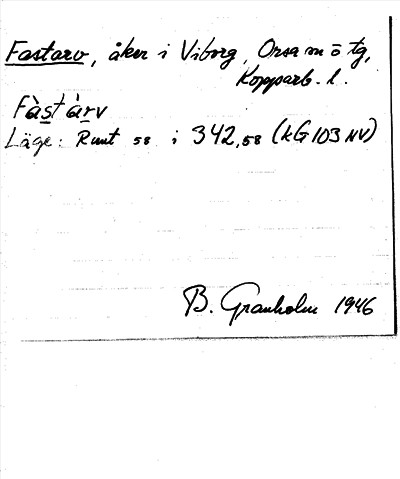 Fastarv, åker i Viborg, Orsa m ō tg,
Kopparb. l.
Fàst àrv
Läge: Runt 58 i 342,58 (kG 103 NV)
B. Granholm 1946